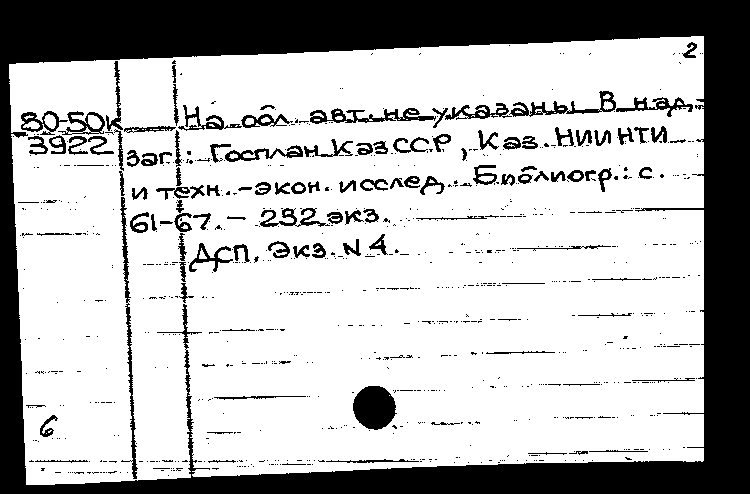 2
80-50к
3922
На обл. авт. не указаны. В над-
заг.: Госплан КазССР, Каз. НИИНТИ
и техн.-экон. исслед. Библиогр.: с.
61-67. - 232 экз.
ДСП. Экз. N 4.
6